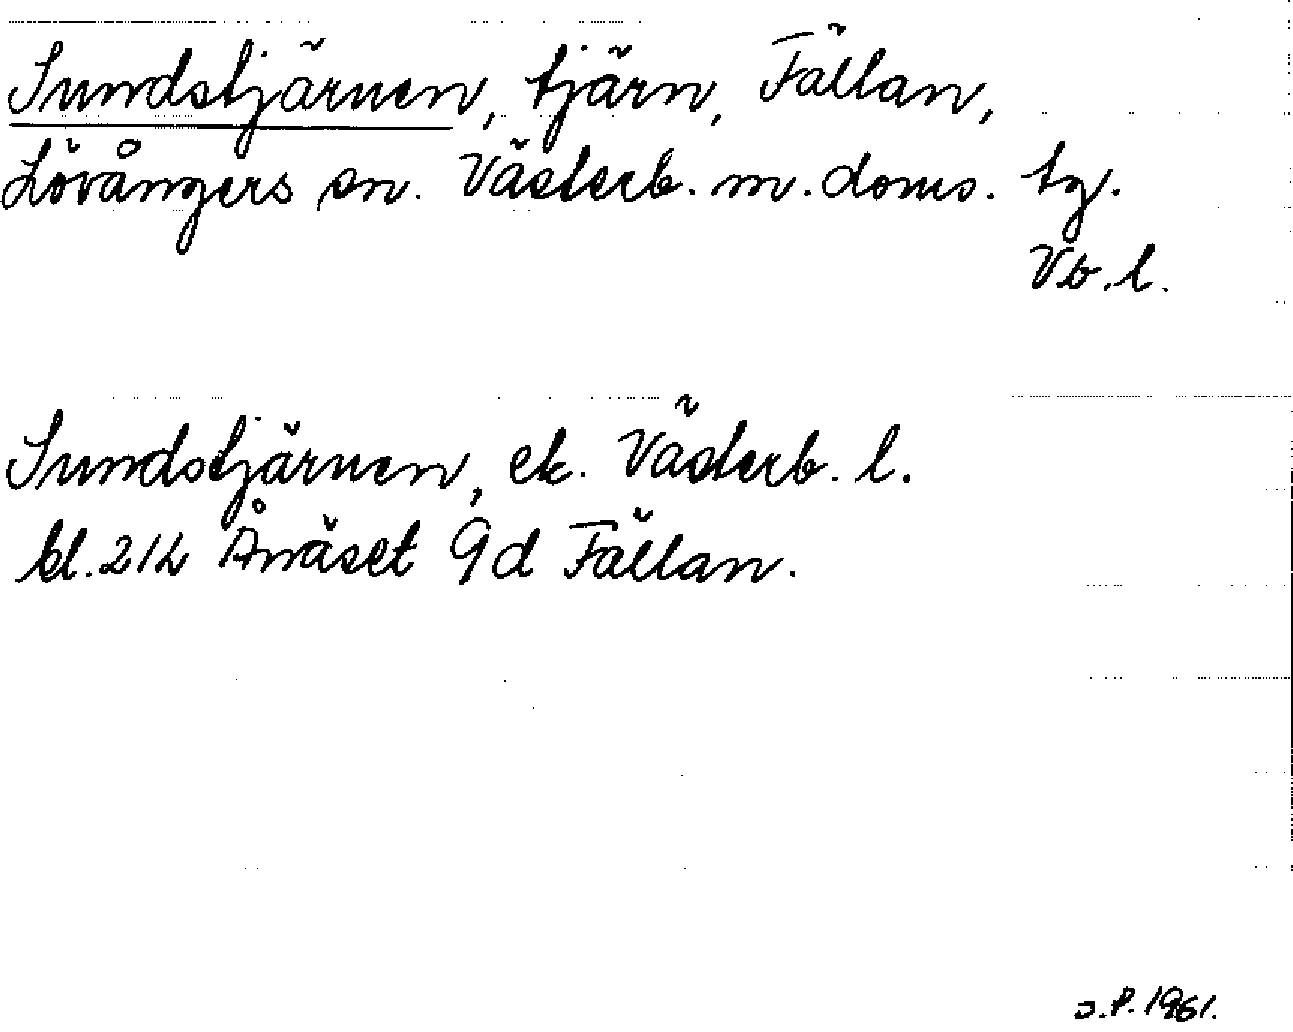 Sundstjärnen, tjärn, Fällan,
Lövångers sn. Västerb. m. doms. tg.
Vb. l.
Sundstjärnen, ek. Västerb. l.
bl. 21L Ånäset 9d Fällan.
J.P. 1961.